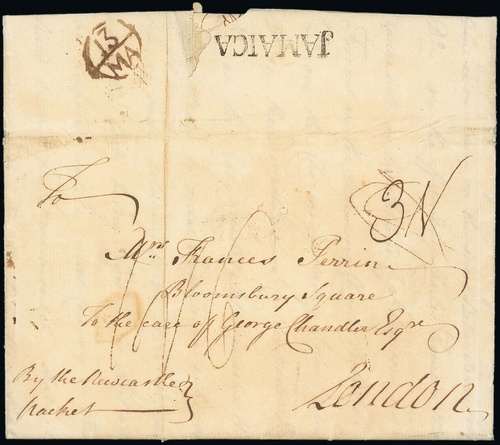 13
MA
JAMAICA
To
3N
Mrs Frances Perrin
Bloomsbury Square
To the care of George Chandler Esqr
By the Newcastle
packet
London